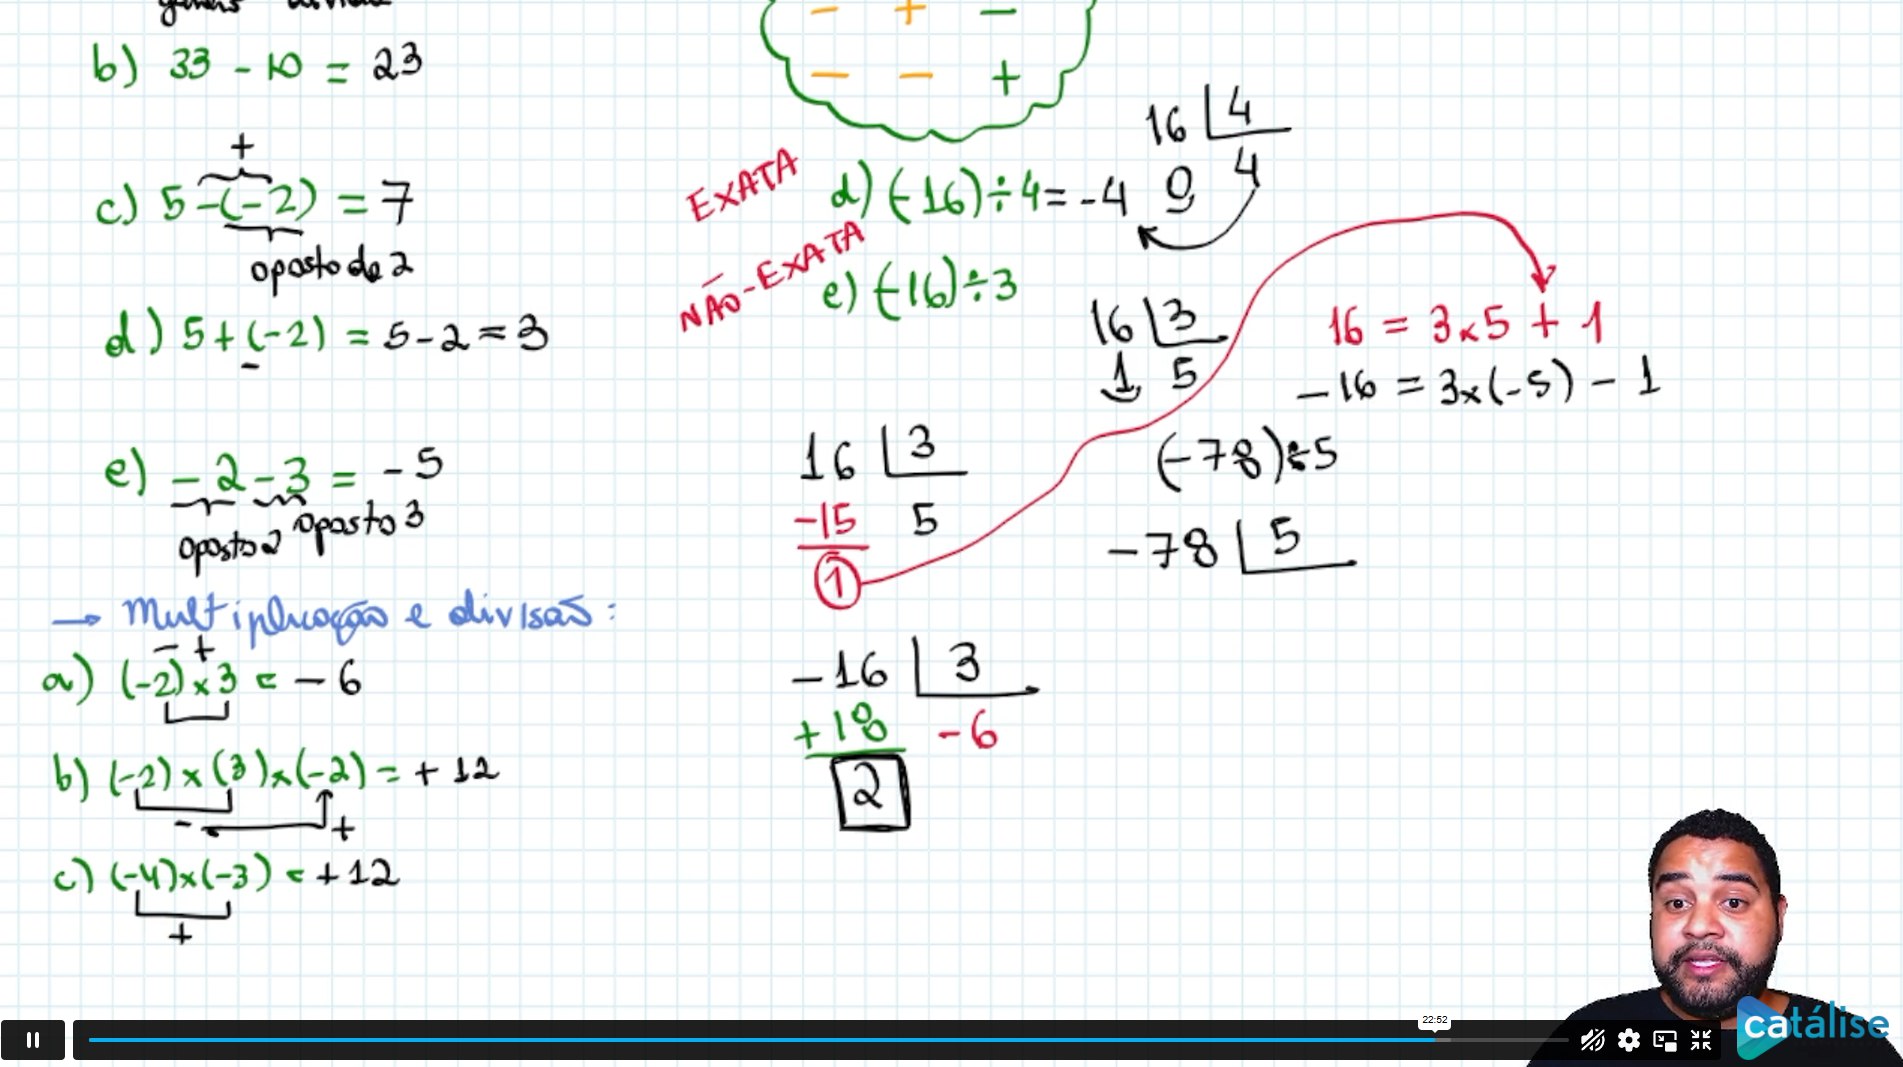 b) 33 - 10 = 23
+
c) 5 -(-2) = 7
oposto de 2
d) 5 + (-2) = 5 - 2 = 3
-
e) - 2 - 3 = - 5
oposto 2 oposto 3
→ Multiplicação e divisão:
- +
a) (-2) × 3 = - 6
b) (-2) × (3) × (-2) = + 12
- +
c) (-4) × (-3) = + 12
+
- + -
- - +
EXATA d) (-16) ÷ 4 = - 4
16 4
0 4
NÃO-EXATA e) (-16) ÷ 3
16 3
1 5
16 = 3 × 5 + 1
-16 = 3 × (-5) - 1
16 3
-15 5
1
(-78) ÷ 5
-78 5
-16 3
+18 -6
2
22:52
catálise